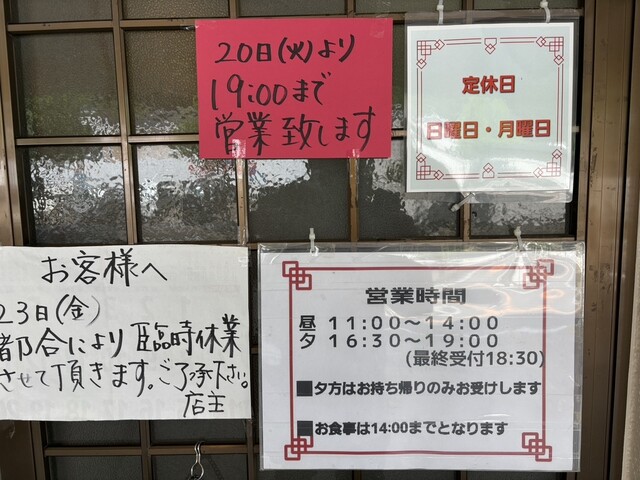 20日(火)より
19:00まで
営業致します
定休日
日曜日・月曜日
お客様へ
23日(金)
都合により臨時休業
させて頂きます。ご了承下さい。
店主
営業時間
昼 11:00～14:00
夕 16:30～19:00
(最終受付18:30)
■夕方はお持ち帰りのみお受けします
■お食事は14:00までとなります